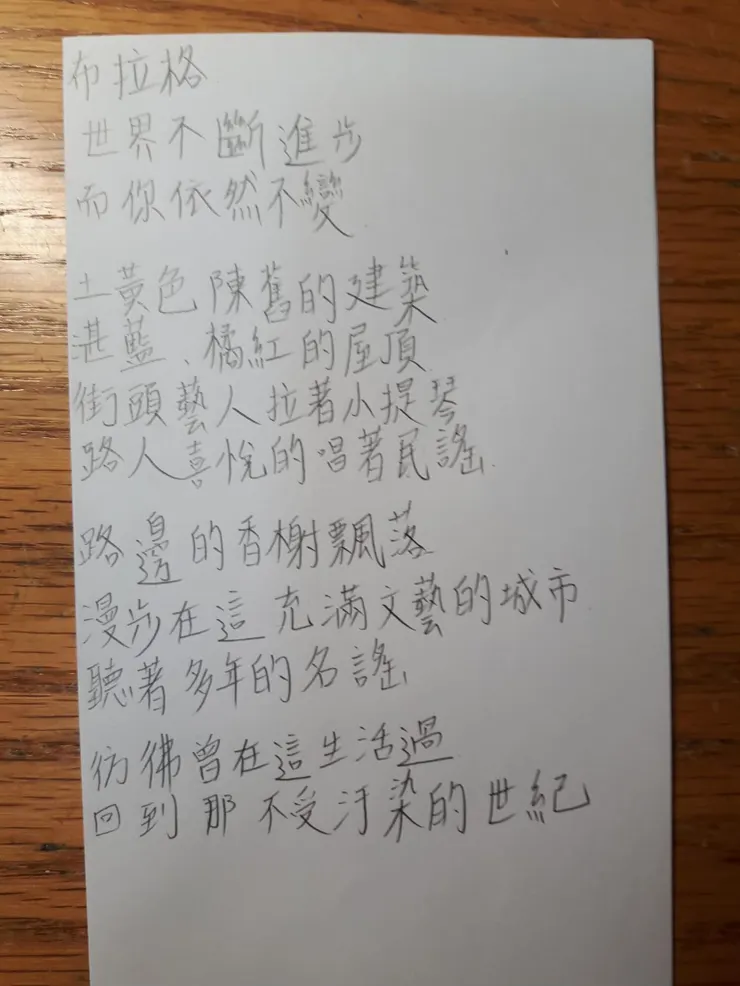 布拉格
世界不斷進步
而你依然不變
土黃色陳舊的建築
湛藍、橘紅的屋頂
街頭藝人拉著小提琴
路人喜悅的唱著民謠
路邊的香榭飄落
漫步在這充滿文藝的城市
聽著多年的名謠
彷彿曾在這生活過
回到那不受汙染的世紀